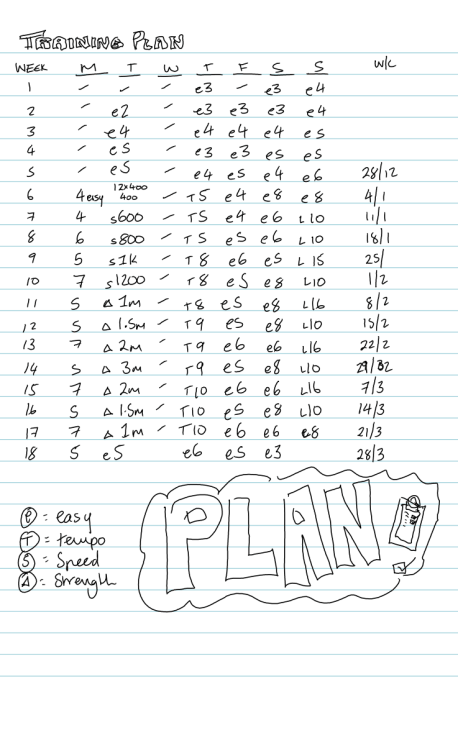 TRAINING PLAN
WEEK M T W T F S S W/C
1 - - - e3 - e3 e4
2 - e2 - e3 e3 e3 e4
3 - e4 e4 e4 e4 e5
4 - e5 e3 e3 e5 e5
5 - e5 e4 e5 e4 e6 28/12
6 4easy 12x400 400 - T5 e4 e8 e8 4/1
7 4 s600 - T5 e4 e6 L10 11/1
8 6 s800 - T5 e5 e6 L10 18/1
9 5 s1K - T8 e6 e5 L15 25/
10 7 s1200 - T8 e5 e8 L10 1/2
11 5 Δ 1m - T8 e5 e8 L16 8/2
12 5 Δ 1.5m - T9 e5 e8 L10 15/2
13 7 Δ 2m - T9 e6 e6 L16 22/2
14 5 Δ 3m - T9 e5 e8 L10 29/2
15 7 Δ 2m - T10 e6 e6 L16 7/3
16 5 Δ 1.5m - T10 e5 e8 L10 14/3
17 7 Δ 1m - T10 e6 e6 e8 21/3
18 5 e5 e6 e5 e3 28/3
PLAN
e = easy
T = tempo
S = Speed
Δ = Strength